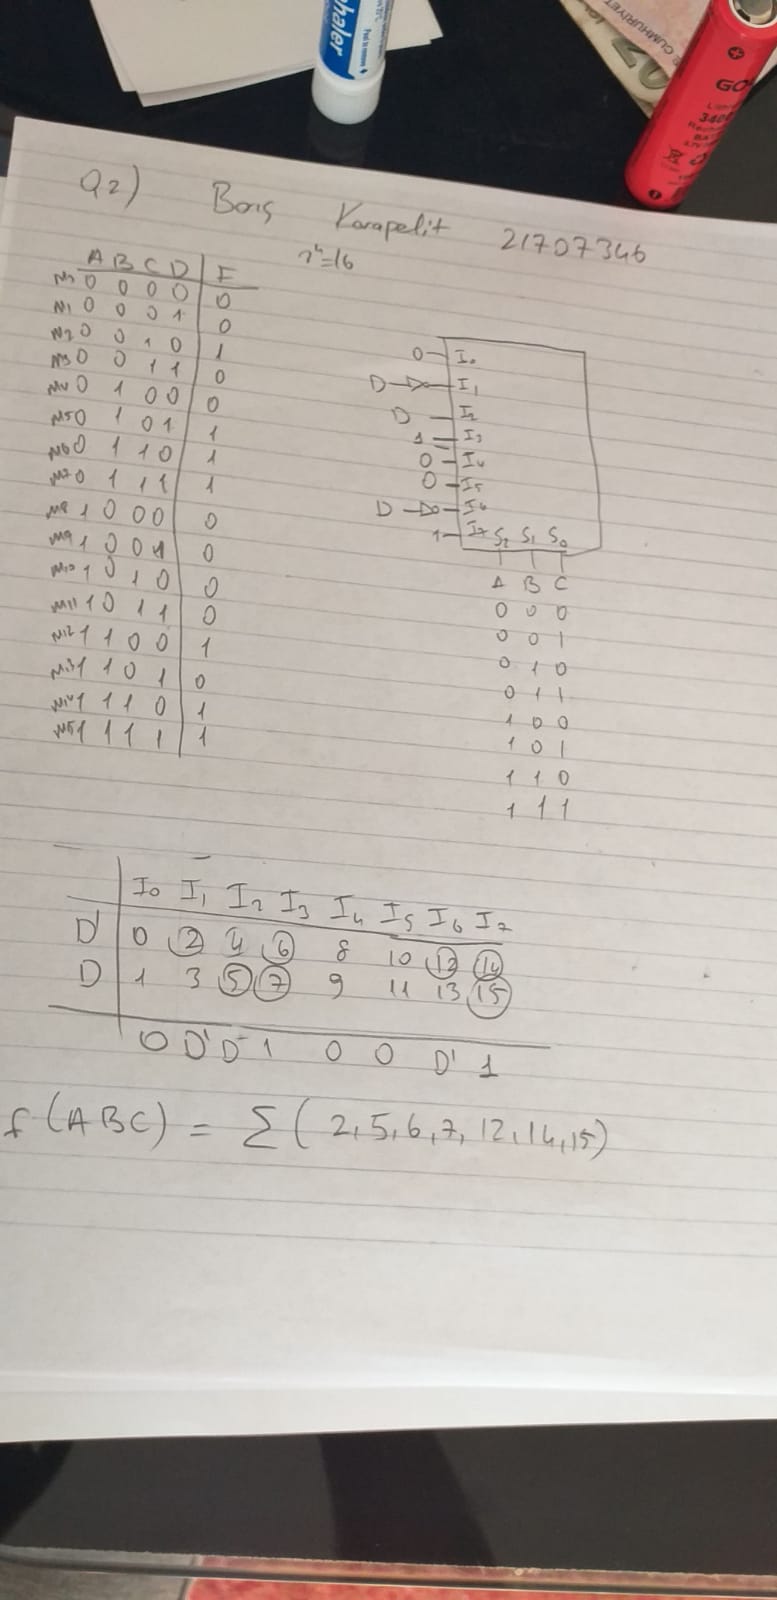 haler
CUMHURİYET
GO
340
Q2) Barış Karapelit 21707346
2⁴=16
A B C D F
m0 0 0 0 0 0
m1 0 0 0 1 0
m2 0 0 1 0 1
m3 0 0 1 1 0
m4 0 1 0 0 0
m5 0 1 0 1 1
m6 0 1 1 0 1
m7 0 1 1 1 1
m8 1 0 0 0 0
m9 1 0 0 1 0
m10 1 0 1 0 0
m11 1 0 1 1 0
m12 1 1 0 0 1
m13 1 1 0 1 0
m14 1 1 1 0 1
m15 1 1 1 1 1
0 I0
D I1
D I2
1 I3
0 I4
0 I5
D I6
1 I7 S2 S1 S0
A B C
0 0 0
0 0 1
0 1 0
0 1 1
1 0 0
1 0 1
1 1 0
1 1 1
I0 I1 I2 I3 I4 I5 I6 I7
D' 0 2 4 6 8 10 12 14
D 1 3 5 7 9 11 13 15
0 D' D 1 0 0 D' 1
f(ABC) = Σ(2,5,6,7,12,14,15)